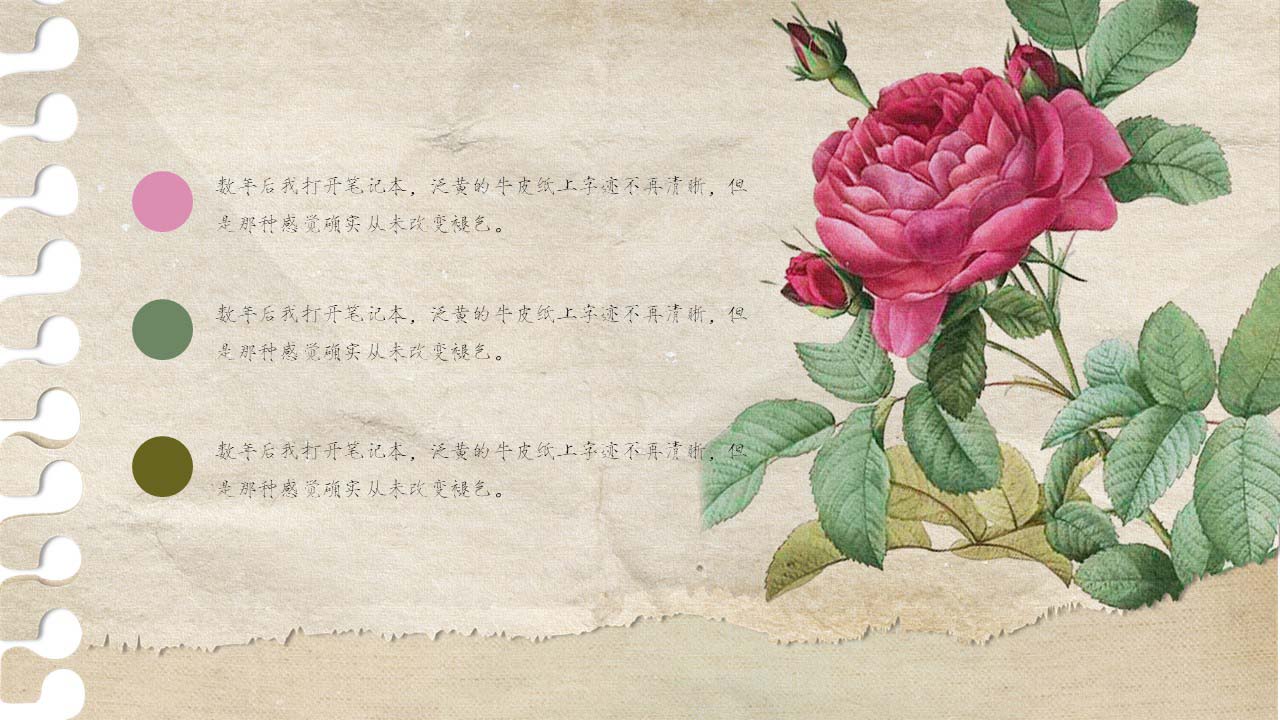 数年后我打开笔记本，泛黄的牛皮纸上字迹不再清晰，但
是那种感觉确实从未改变褪色。
数年后我打开笔记本，泛黄的牛皮纸上字迹不再清晰，但
是那种感觉确实从未改变褪色。
数年后我打开笔记本，泛黄的牛皮纸上字迹不再清晰，但
是那种感觉确实从未改变褪色。